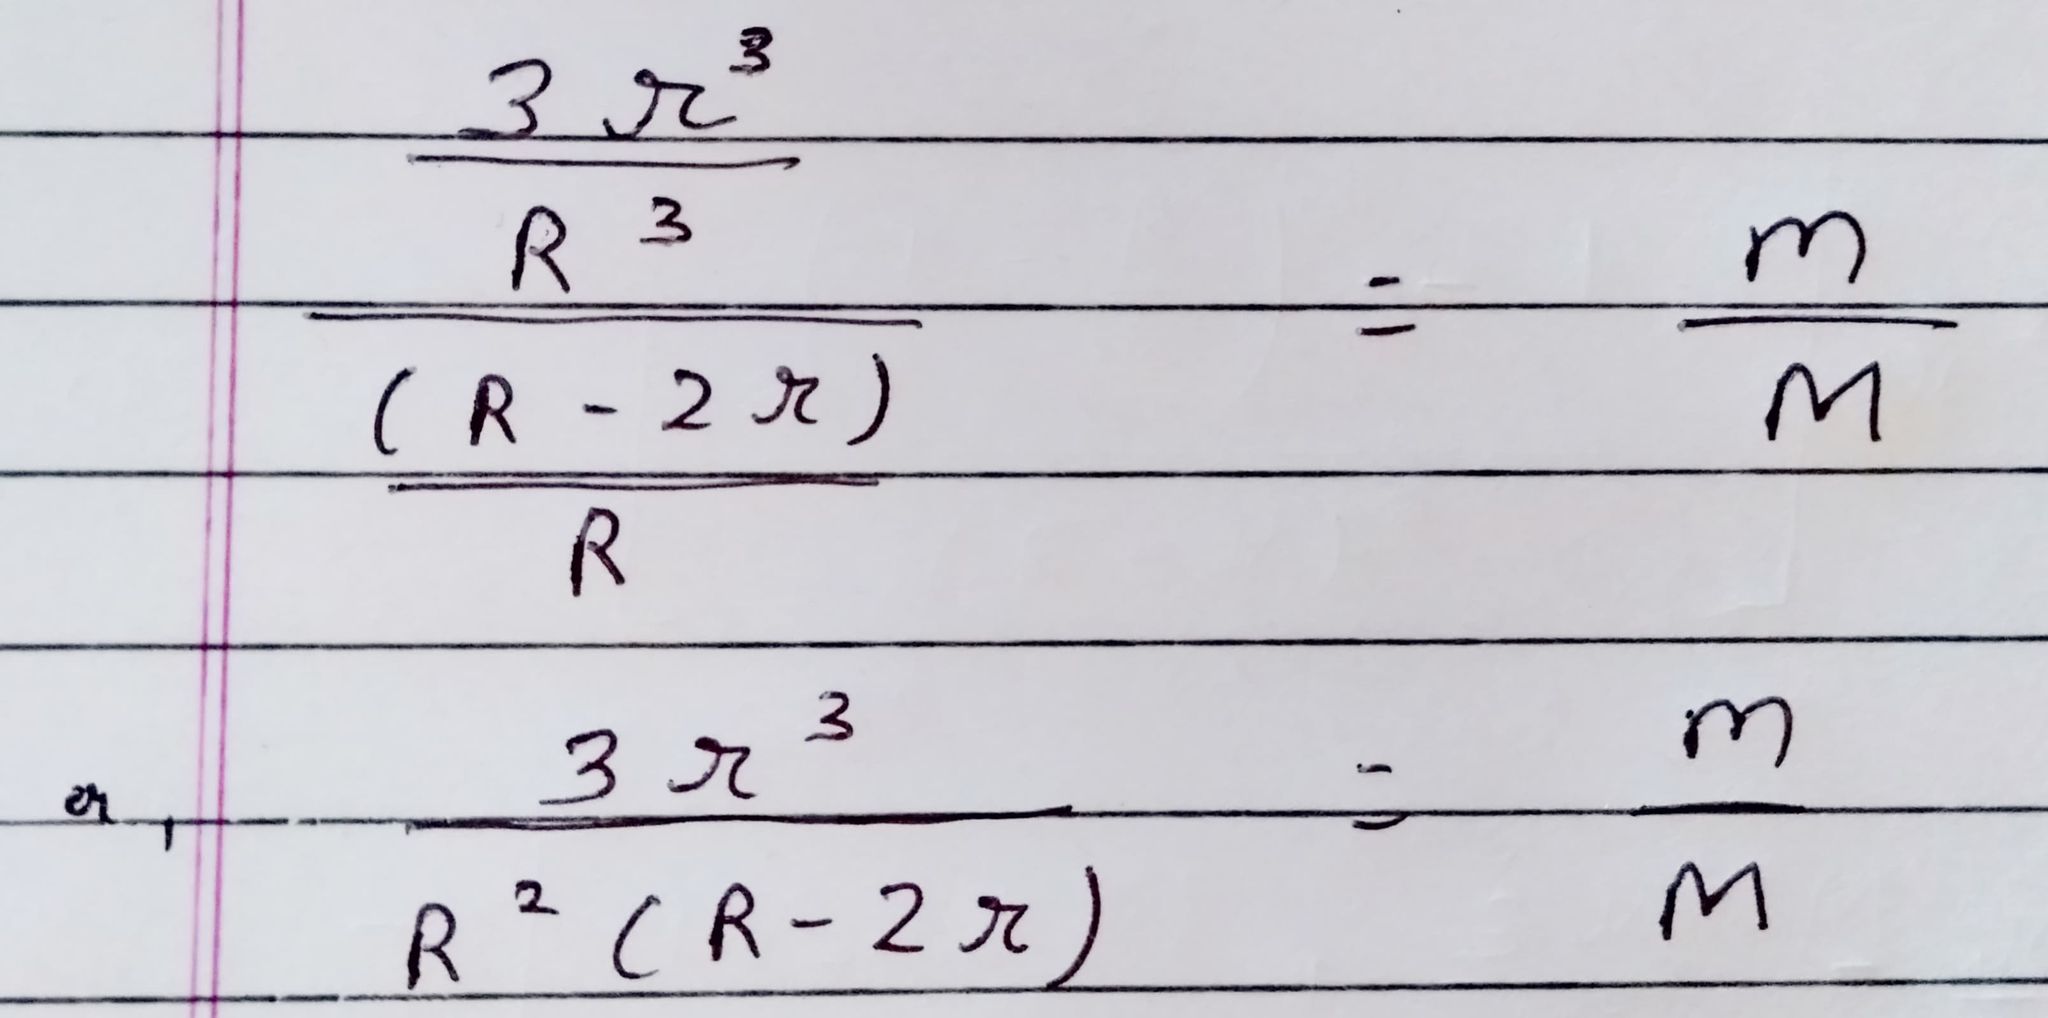 \frac{\frac{3r^3}{R^3}}{\frac{(R-2r)}{R}} = \frac{m}{M}
or, \frac{3r^3}{R^2(R-2r)} = \frac{m}{M}